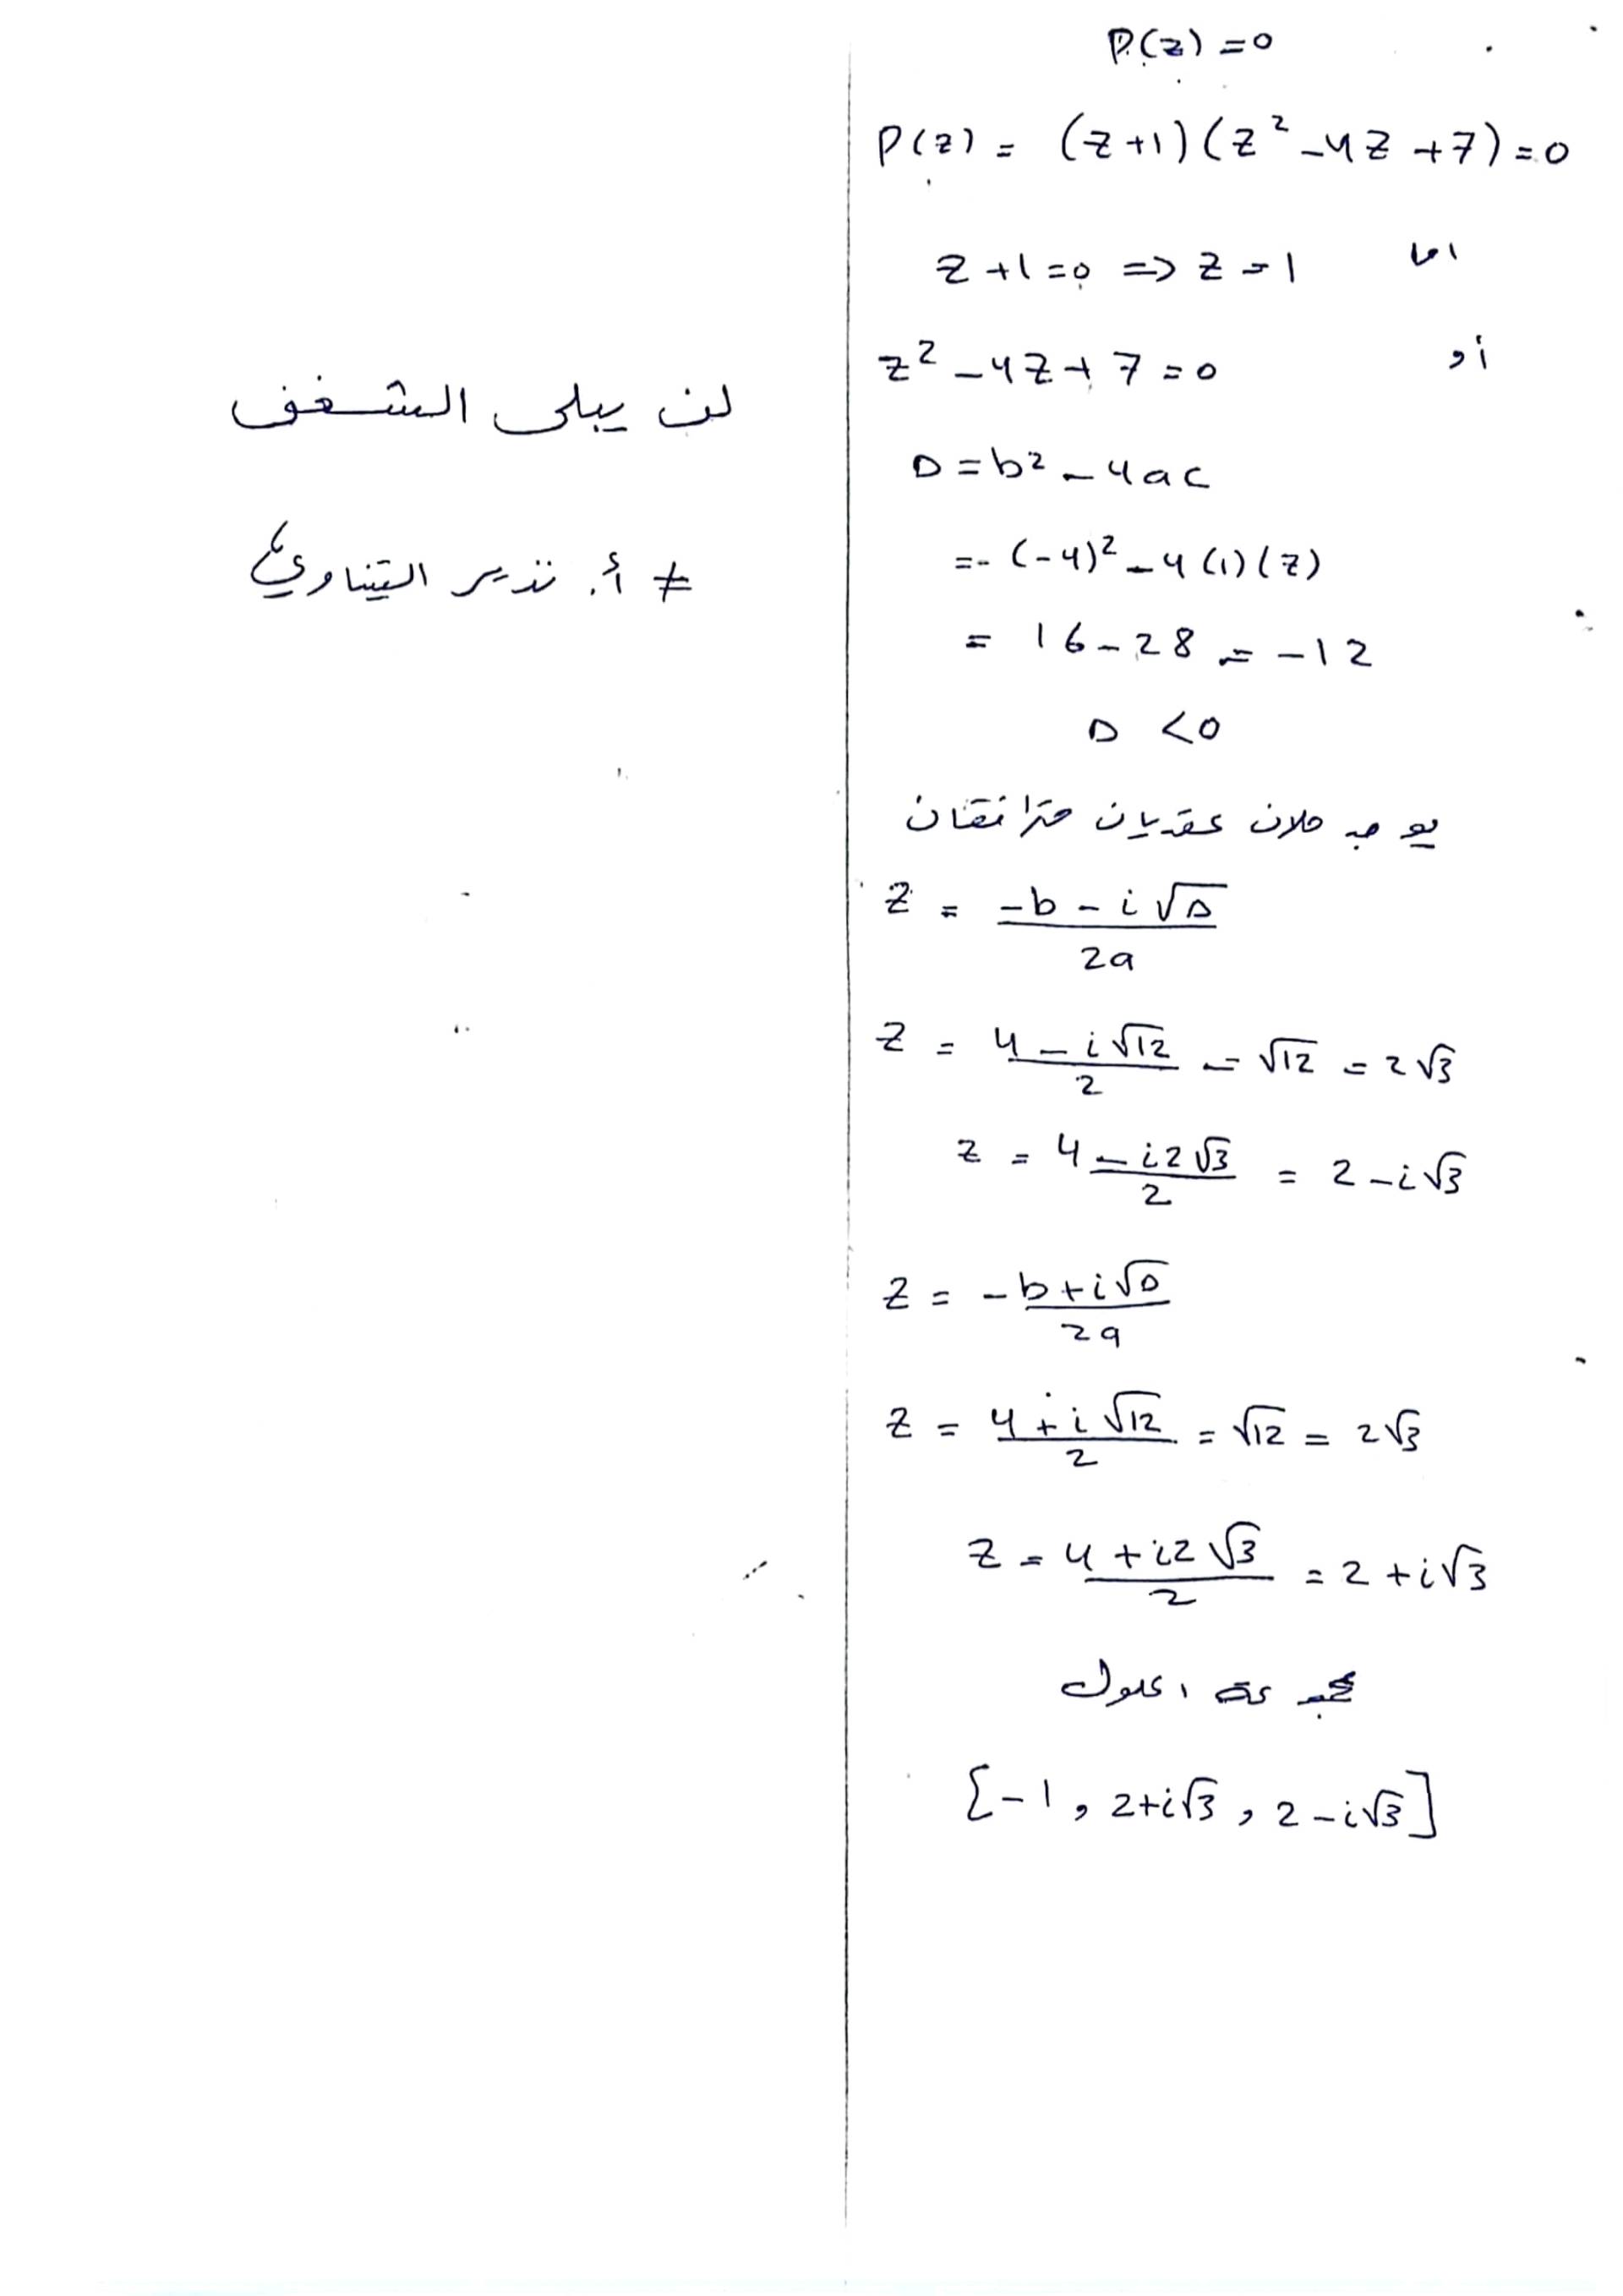 P(z) = 0
P(z) = (z+1)(z² - 4z + 7) = 0
اما z + 1 = 0 => z = 1
أو z² - 4z + 7 = 0
Δ = b² - 4ac
= - (-4)² - 4(1)(7)
= 16 - 28 = -12
Δ < 0
يوجد حلان عقديان مترافقان
z = (-b - i√Δ)/2a
z = (4 - i√12)/2 = √12 = 2√3
z = (4 - i2√3)/2 = 2 - i√3
z = (-b + i√Δ)/2a
z = (4 + i√12)/2 = √12 = 2√3
z = (4 + i2√3)/2 = 2 + i√3
مجموعة الحلول
{-1, 2+i√3, 2-i√3]
لن يبلى الشغف
≠ أ. نذير التيناوي